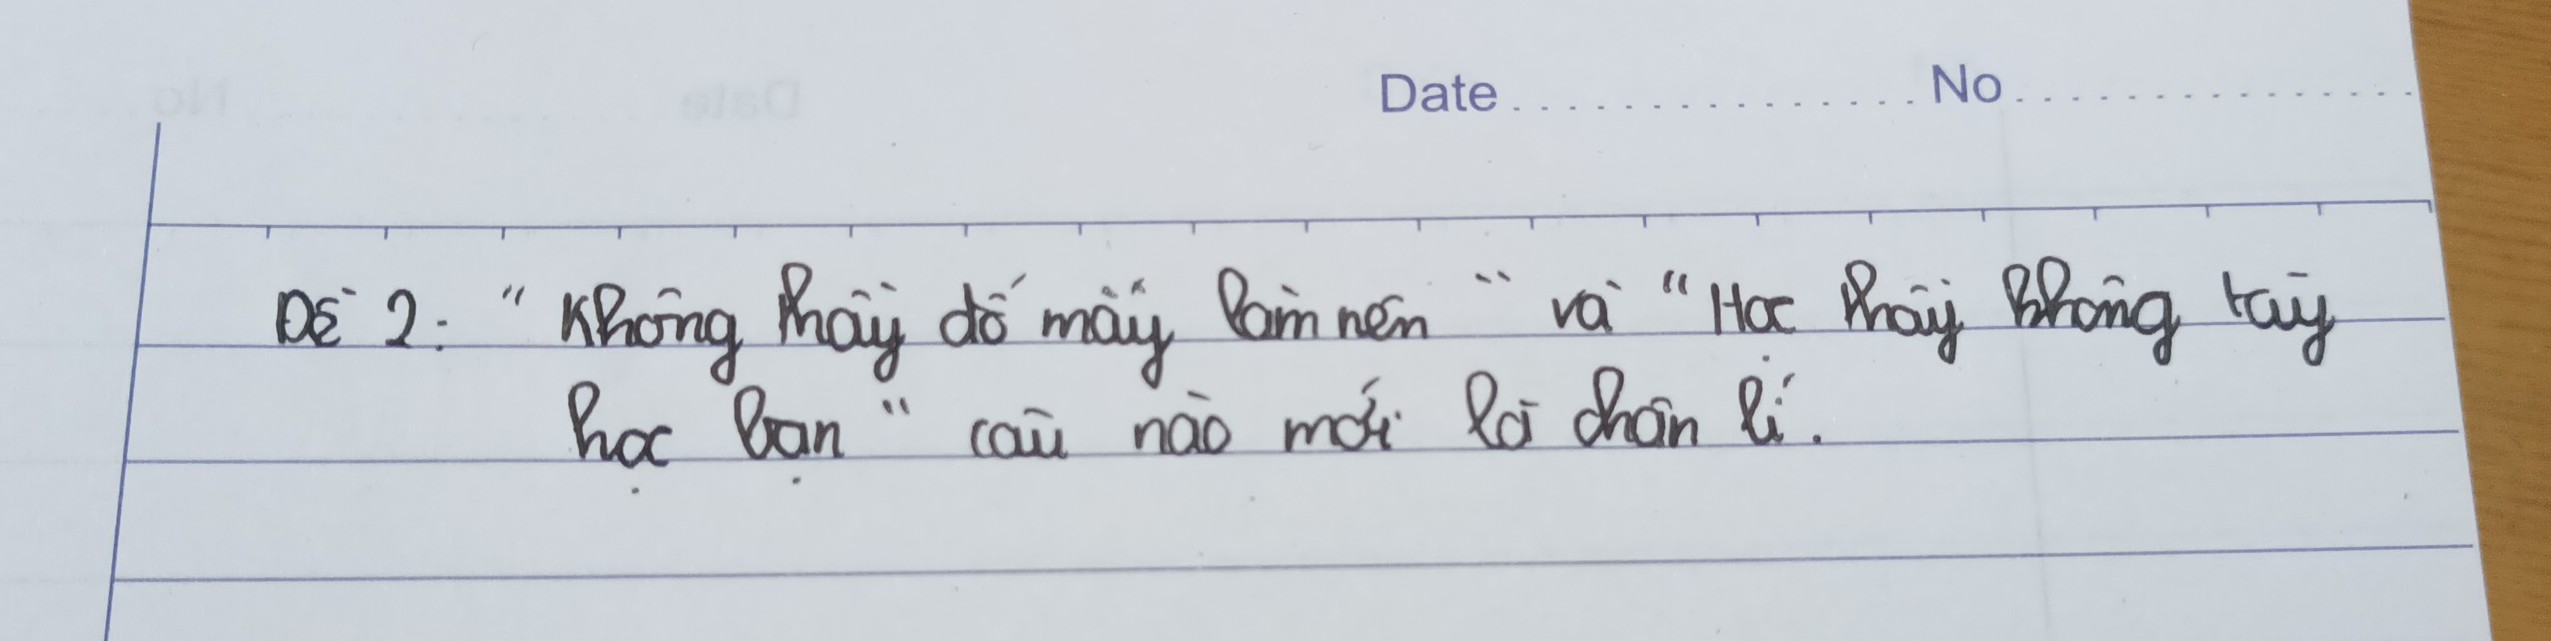 Date No
Đề 2: "Không thầy đố mày làm nên" và "Học thầy không tày
học bạn" câu nào mới là chân lí.